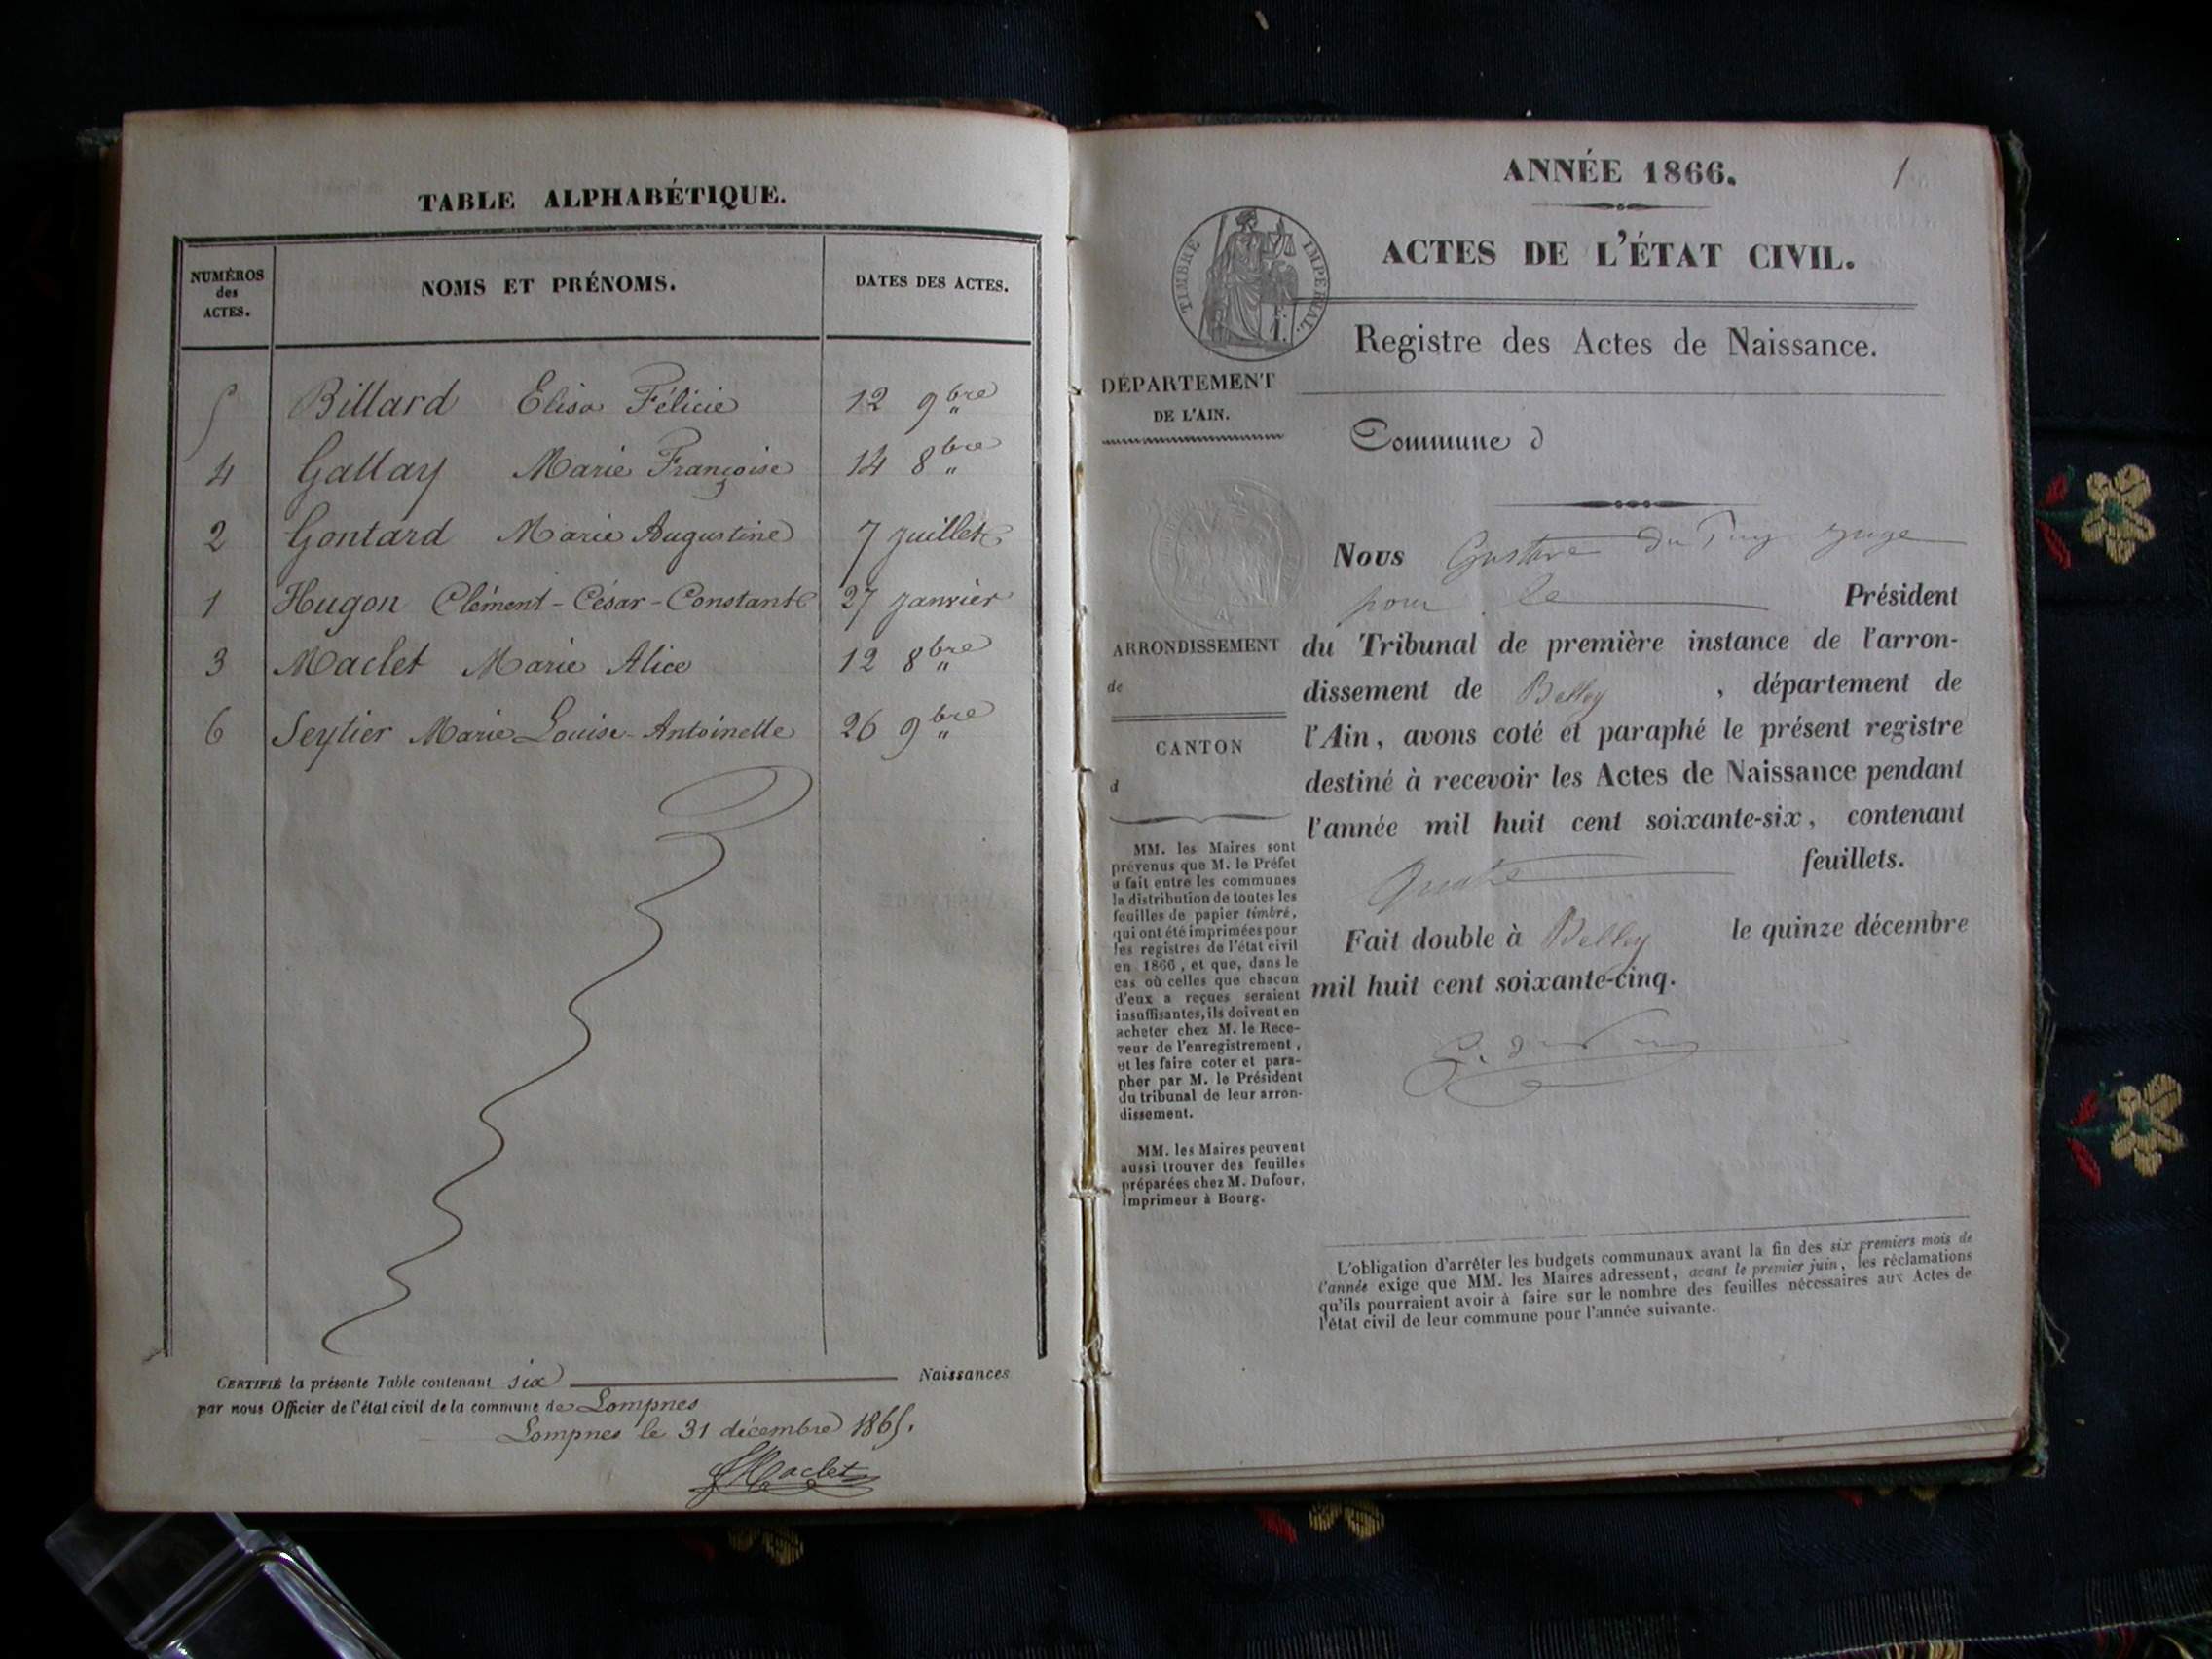 TABLE ALPHABÉTIQUE.
NUMÉROS des ACTES. NOMS ET PRÉNOMS. DATES DES ACTES.
5 Billard Elisa Félicie 12 9bre
4 Gallay Marie Françoise 14 8bre
2 Gontard Marie Augustine 7 juillet
1 Hugon Clément-César-Constant 27 janvier
3 Maclet Marie Alice 12 8bre
6 Seytier Marie Louise-Antoinette 26 9bre
CERTIFIÉ la présente Table contenant six Naissances
par nous Officier de l'état civil de la commune de Lompnes
Lompnes le 31 décembre 1865.
Maclet
ANNÉE 1866.
1
ACTES DE L'ÉTAT CIVIL.
TIMBRE IMPERIAL.
Registre des Actes de Naissance.
DÉPARTEMENT
DE L'AIN.
Commune d
ARRONDISSEMENT
de
CANTON
d
MM. les Maires sont
prévenus que M. le Préfet
a fait entre les communes
la distribution de toutes les
feuilles de papier timbré,
qui ont été imprimées pour
les registres de l'état civil
en 1866, et que, dans le
cas où celles que chacun
d'eux a reçues seraient
insuffisantes, ils doivent en
acheter chez M. le Rece-
veur de l'enregistrement,
et les faire coter et para-
pher par M. le Président
du tribunal de leur arron-
dissement.
MM. les Maires peuvent
aussi trouver des feuilles
préparées chez M. Dufour,
imprimeur à Bourg.
Nous Gustave du Puy juge
pour le Président
du Tribunal de première instance de l'arron-
dissement de Belley, département de
l'Ain, avons coté et paraphé le présent registre
destiné à recevoir les Actes de Naissance pendant
l'année mil huit cent soixante-six, contenant
quatre feuillets.
Fait double à Belley le quinze décembre
mil huit cent soixante-cinq.
G. du Puy
L'obligation d'arrêter les budgets communaux avant la fin des six premiers mois de
l'année exige que MM. les Maires adressent, avant le premier juin, les réclamations
qu'ils pourraient avoir à faire sur le nombre des feuilles nécessaires aux Actes de
l'état civil de leur commune pour l'année suivante.